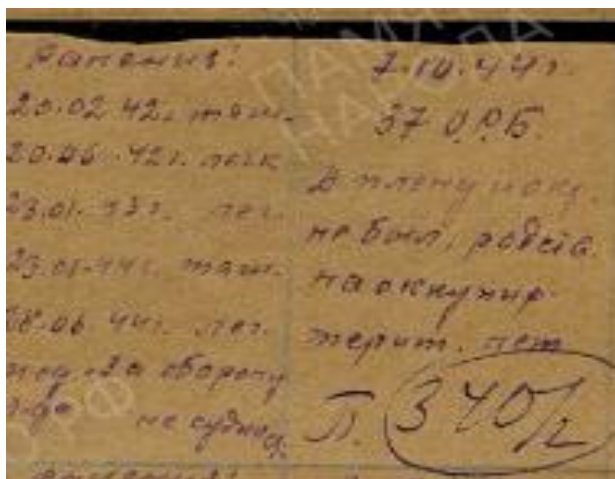 Ранения:
20.02 42г. тяж.
20.06.42г. легк
23.01.43г. лег.
23.01.44г. тяж.
08.06 44г. лег.
мед "За оборону
не судим.
7.10.44г.
37 О.Р.Б.
В плену и окр.
не был, родств.
на оккупир.
терит. нет
Л. 340/2